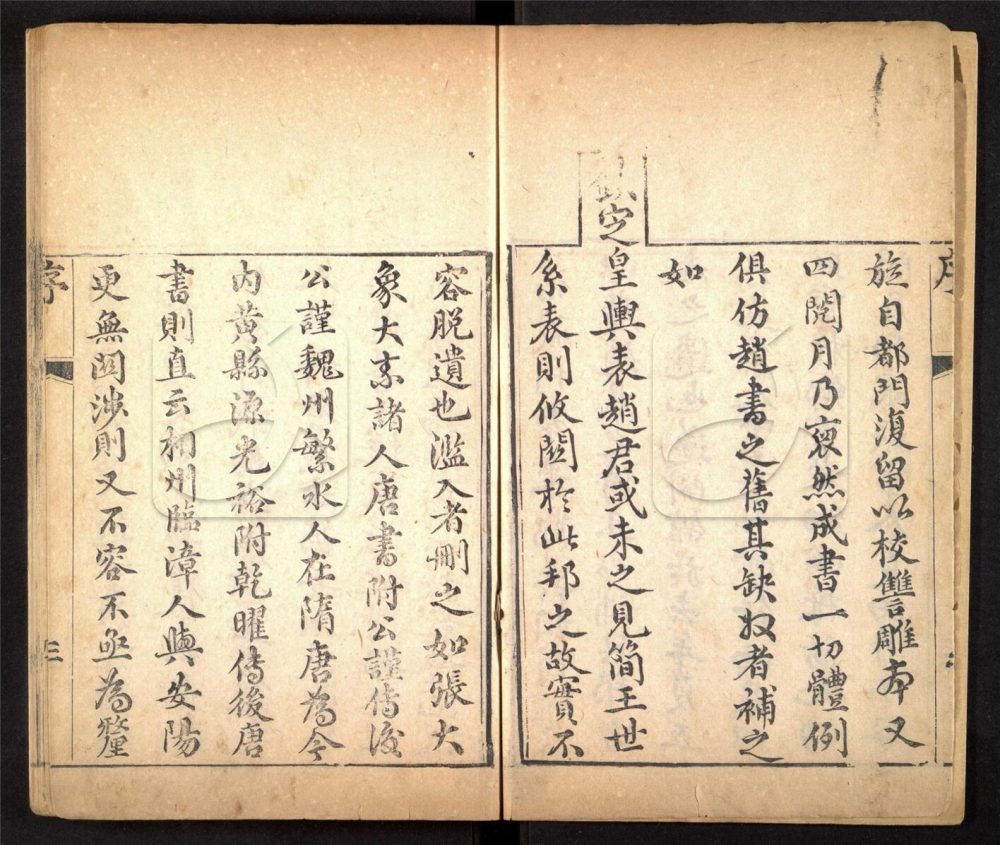 旋自都門復留以校讐雕本又
四閱月乃裒然成書一切體例
俱仿趙書之舊其缺始者補之
如
欽定皇輿表趙君或未之見簡王世
系表則攸關於此邦之故實不
容脱遺也濫入者刪之如張大
象大素諸人唐書附公謹傳後
公謹魏州繁水人在隋唐為今
内黄縣源光裕附乾曜傳後唐
書則直云相州臨漳人與安陽
更無関涉則又不容不亟為釐
序
三